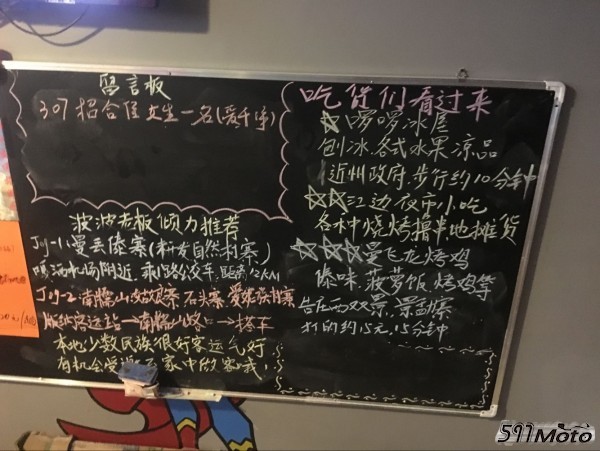 留言板
307招合住女生一名(爱干净)
波波老板倾力推荐
Jy-1:曼丢傣寨(未开发自然村寨)
附近 乘 路公交车 距离
Jy-2 南糯山 寨 石头寨 爱 寨
版纳客运站→南糯山路口→搭车
本地少数民族很好客运气好
有机会受邀 家中做客哦
吃货们看过来
☆啰啰冰屋
刨冰.各式水果凉品
近州政府,步行约10分钟
☆☆江边夜市小吃
各种烧烤撸串地摊货
☆☆☆曼飞龙烤鸡
傣味.菠萝饭.烤鸡等
告庄西双景.景 寨
打的约15元,15分钟
591Moto